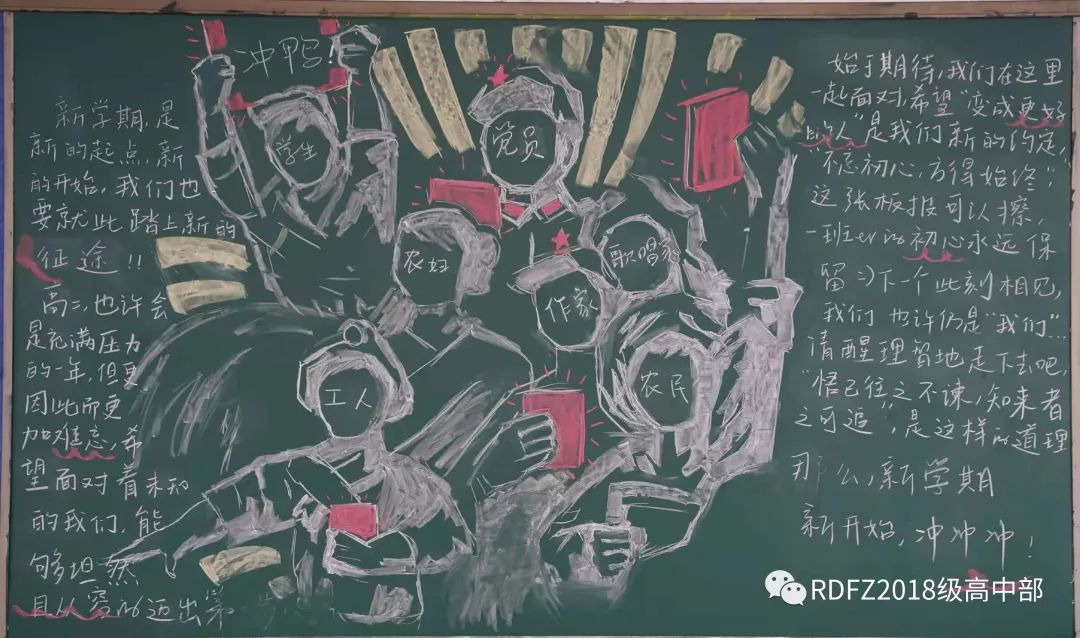 冲鸭!
新学期,是
新的起点,新
的开始,我们也
要就此踏上新的
征途!!
高二,也许会
是充满压力
的一年,但更
因此而更
加难忘,希
望面对着未知
的我们,能
够坦然
且从容的迈出第一步
学生
党员
农妇
作家
歌唱家
工人
农民
始于期待,我们在这里
一起面对,希望“变成更好
的人”是我们新的约定,
“不忘初心,方得始终”,
这张板报可以擦,
一班er的初心永远保
留:)下一个此刻相见,
我们也许仍是“我们”...
清醒理智地走下去吧,
“悟已往之不谏,知来者
之可追”,是这样的道理
那么,新学期
新开始,冲冲冲!
RDFZ2018级高中部